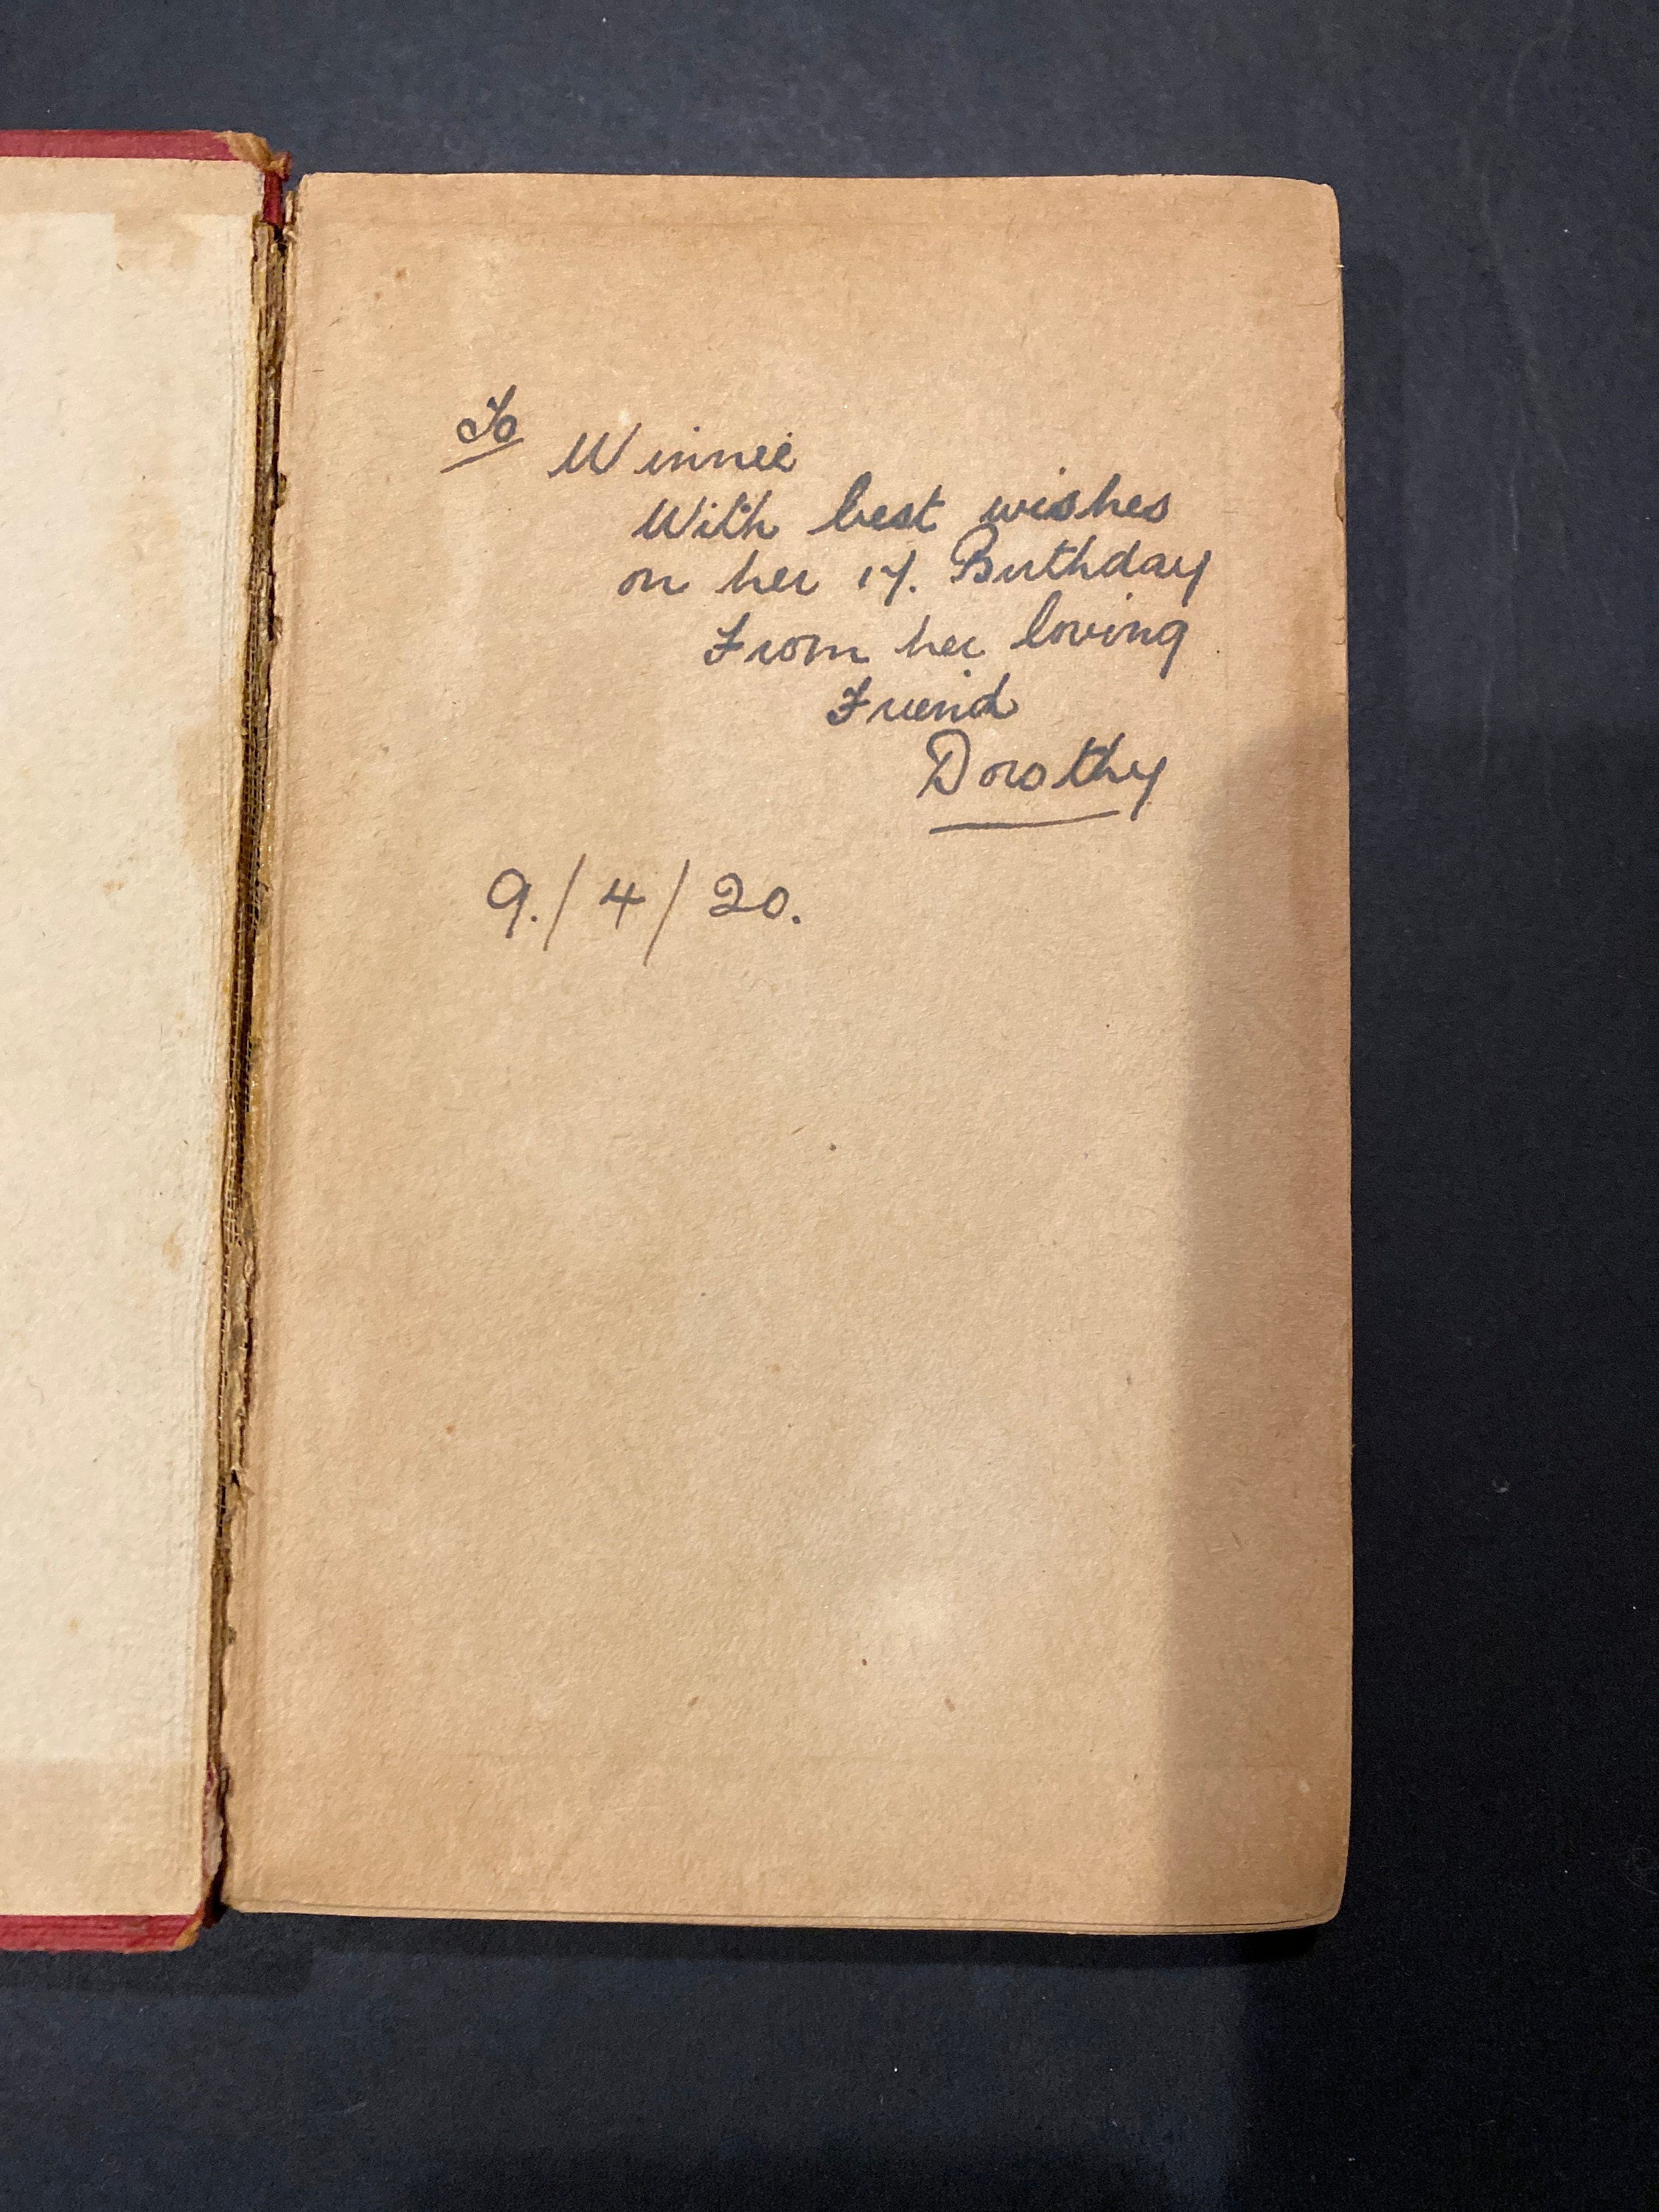 To Winnie
With best wishes
on her 17. Birthday
From her loving
Friend
Dorothy
9./4/20.